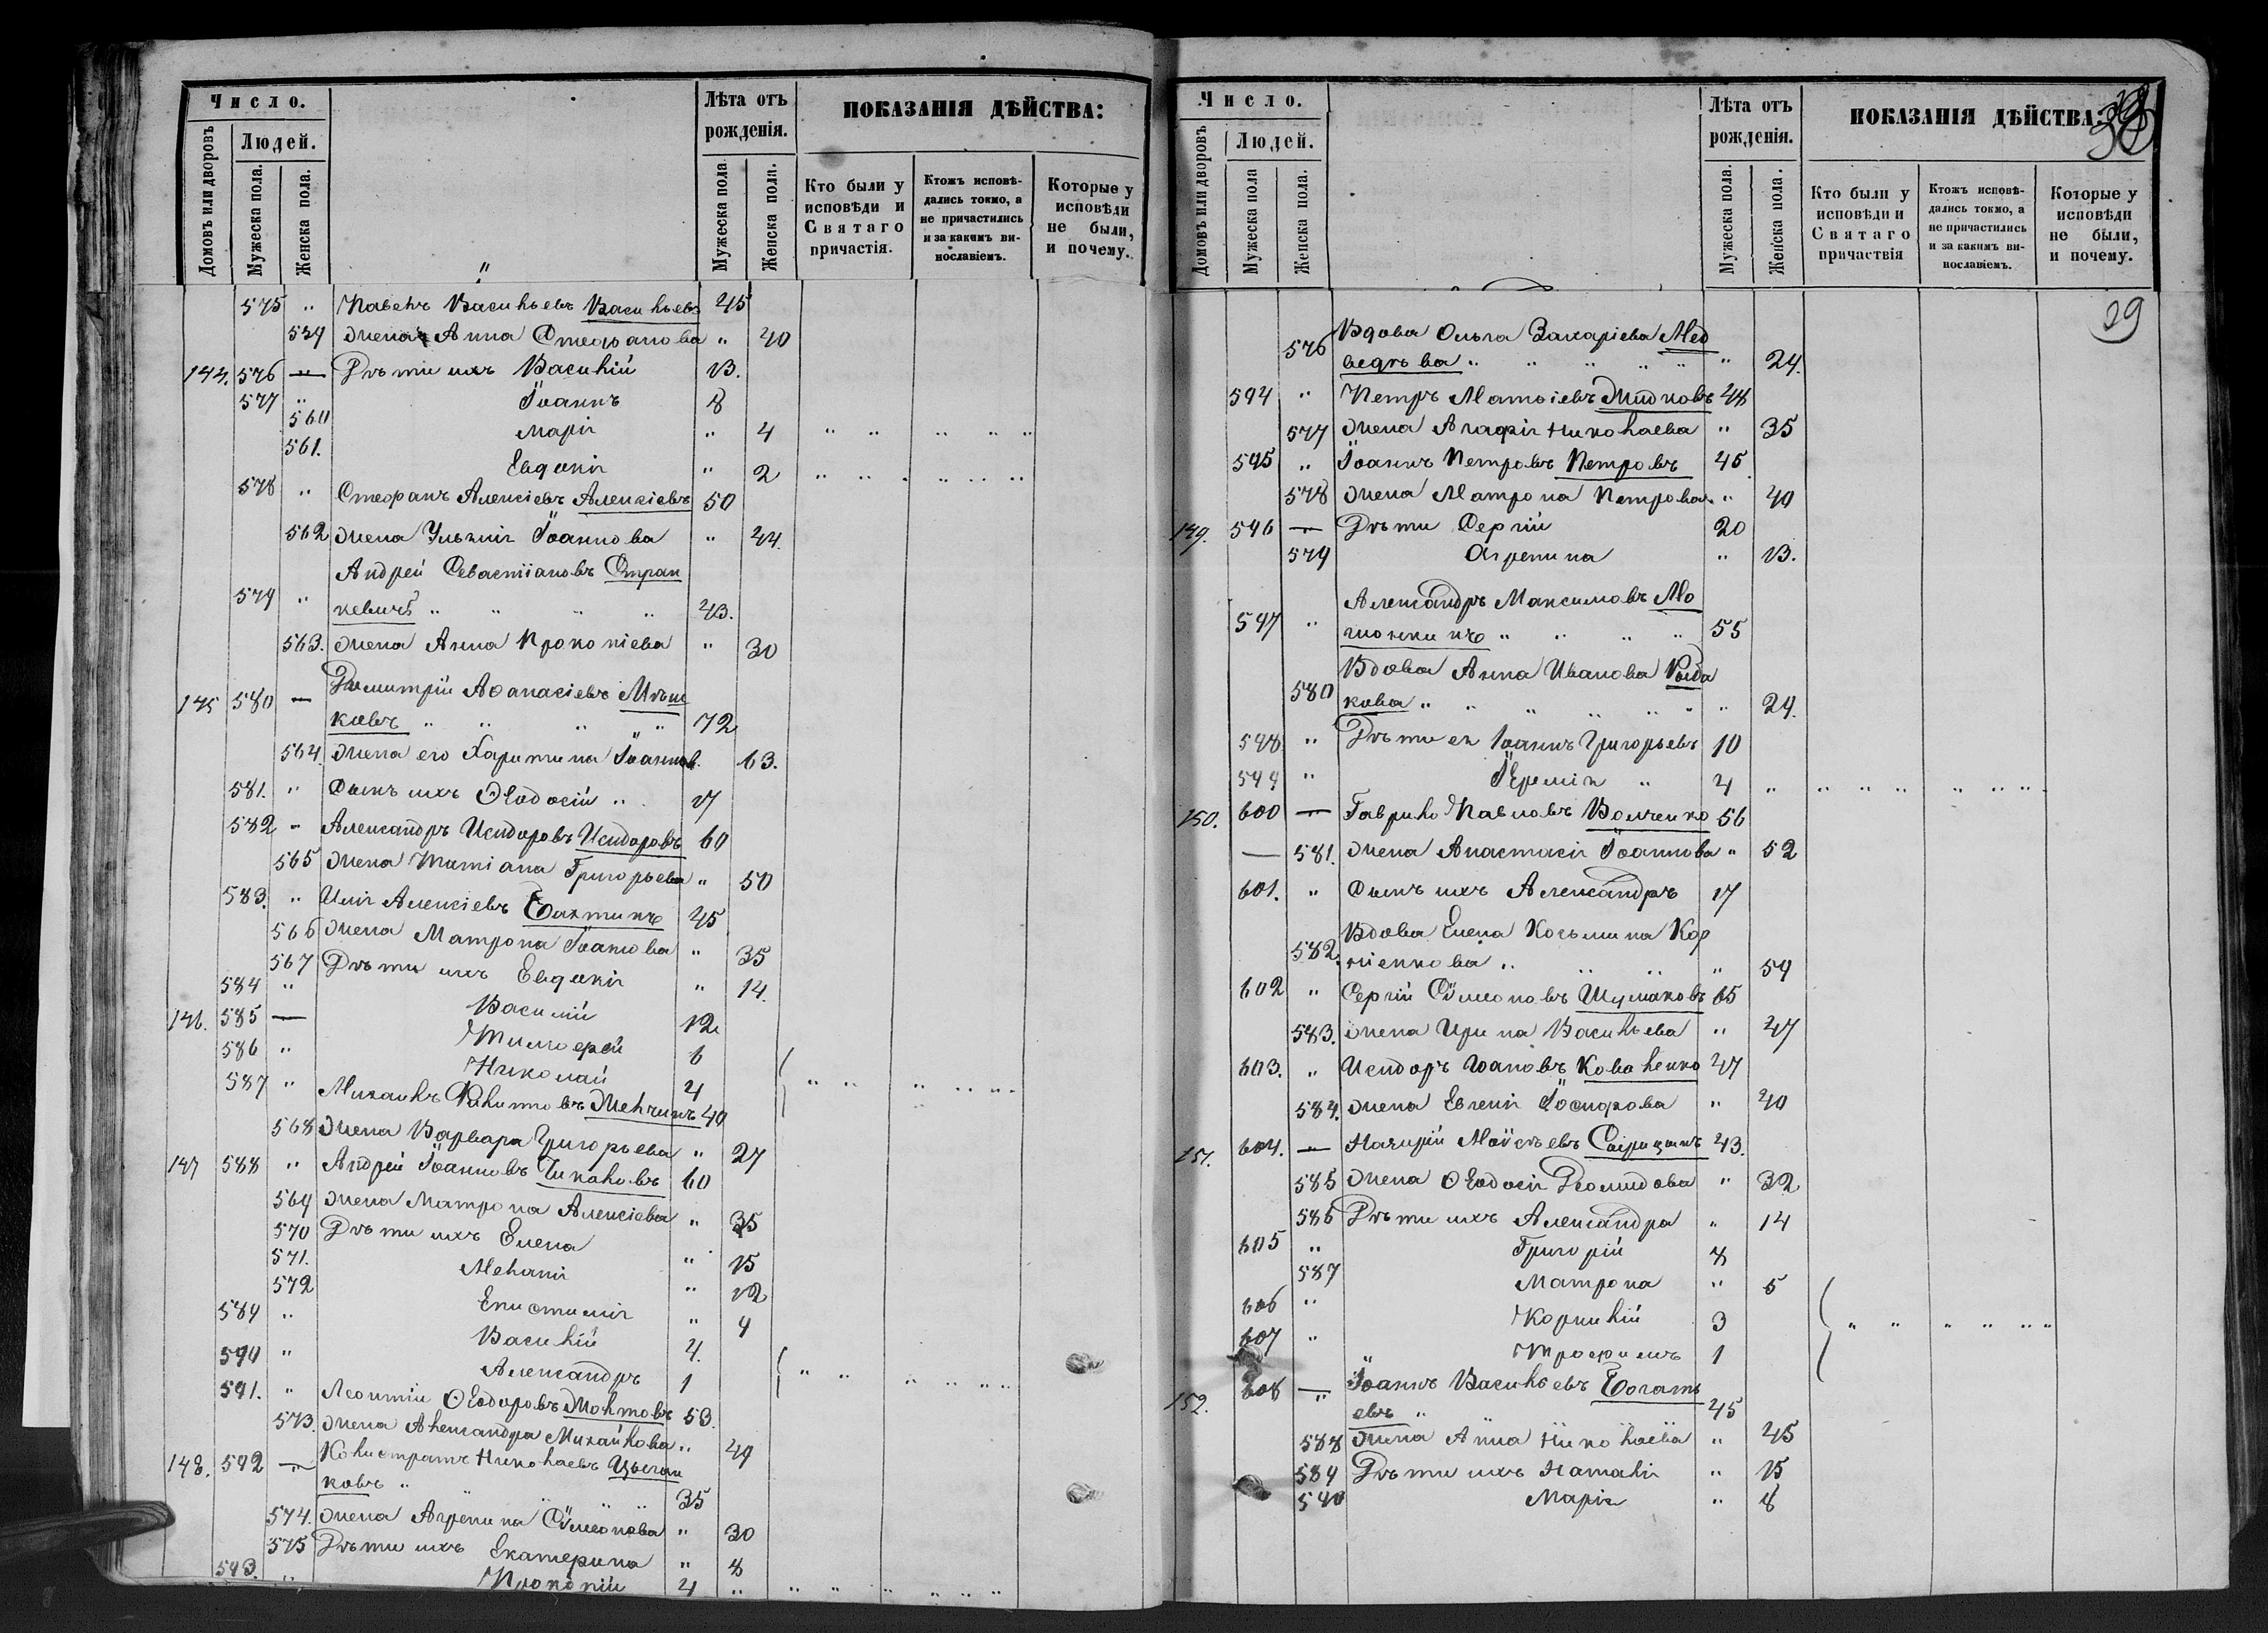 Число. Лѣта отъ рожденія. ПОКАЗАНІЯ ДѢЙСТВА:
Домовъ или дворовъ
Людей.
Мужеска пола.
Женска пола.
Мужеска пола
Женска пола.
Кто были у исповѣди и Святаго причастія.
Ктожъ исповѣдались токмо, а не причастились и за какимъ винославіемъ.
Которые у исповѣди не были, и почему.
575 " Павелъ Васильевъ Васильевъ 45
559 жена Анна Стефанова " 40
144. 576 — Дѣти ихъ Василій 13.
577 " Іоаннъ 8
560 Марія " 4 " " " " "
561. Евдокія " 2 " " " " " "
578 " Стефанъ Алексіевъ Алексіевъ 50
562 жена Ульянія Іоаннова " 44.
Андрей Севастіановъ Стран
579 " кевичъ " " " " 43.
563. жена Анна Прокопіева " 30
Димитрій Аѳанасіевъ Мѣш
145 580 — ковъ " " " " 72
564. жена его Харитина Іоаннов. 63.
581. " Сынъ ихъ Ѳеодосій " 17
582 " Александръ Исидоровъ Исидоровъ 60
565 жена Татіана Григорьева " 50
583. " Илія Алексіевъ Бахтинъ 45
566 жена Матрона Іоаннова " 35
567 Дѣти ихъ Евдокія " 14.
584 " Василій 12
146. 585 — Тимоѳей 6
586 " Николай 4 " " " " " "
587 " Михаилъ Филиповъ Желчинъ 40
568 жена Варвара Григорьева " 27
147 588 " Андрей Іоанновъ Чикаловъ 60
569 жена Матрона Алексіева " 35
570 Дѣти ихъ Елена " 15
571. Меланія " 12
572 Епистимія " 9
589 " Василій 4.
590 " Александръ 1 " " " " " "
591. " Леонтій Ѳеодоровъ Молтовъ 53.
573. жена Александра Михайлова " 49
Калистратъ Николаевъ Цыган
148. 592 — ковъ " " " 35
574. жена Агрепина Сѵмеонова " 30
575 Дѣти ихъ Екатерина " 8
593. " Прокопій 4 " " " " " " "
Число. Лѣта отъ рожденія. ПОКАЗАНІЯ ДѢЙСТВА:
Домовъ или дворовъ
Людей.
Мужеска пола
Женска пола.
Мужеска пола.
Женска пола.
Кто были у исповѣди и Святаго причаствія
Ктожъ исповѣдались токмо, а не причастились и за какимъ винославіемъ.
Которые у исповѣди не были, и почему.
39
Вдова Ольга Захаріева Мед
576 ведѣва " " " " " " 24.
594 " Петръ Матѳіевъ Мидковъ 48
577 жена Агафія Николаева " 35
595 " Іоаннъ Петровъ Петровъ 45
578 жена Матрона Петрова " 40
149. 596 — Дѣти Сергій 20
579 Агрепина " 13.
Александръ Максимовъ Мо
597 " " " " " 55
Вдова Анна Иванова Рыба
580 кова " " " " " " " 24.
598 " Дѣти ея Іоаннъ Григорьевъ 10
599 " Іеремія " 4 " " " " " " " " "
150. 600 — Гаврило Павловъ Волченко 56
— 581. жена Анастасія Іоаннова " 52
601. " Сынъ ихъ Александръ 17
Вдова Елена Козьмина Кор
582. ніенкова " " " " 59
602 " Сергій Сѵмеоновъ Шумаковъ 65
583. жена Ирина Васильева " 47
603. " Исидоръ Іоановъ Коваленко 47
584. жена Евгенія Іосифова " 40
151. 604. — Назарій Моѵсѣевъ Спирицынъ 43.
585 жена Ѳеодосія Деомидова " 32
586 Дѣти ихъ Александра " 14
605 " Григорій 8
587 Матрона " 5
606 " Корнилій 3 " " " " " "
607 " Трофимъ 1
608 — Іоаннъ Васильевъ Богат
152. " евъ " 45
588 жена Анна Николаева " 45
589 Дѣти ихъ Наталія " 15
590 Марія " 8